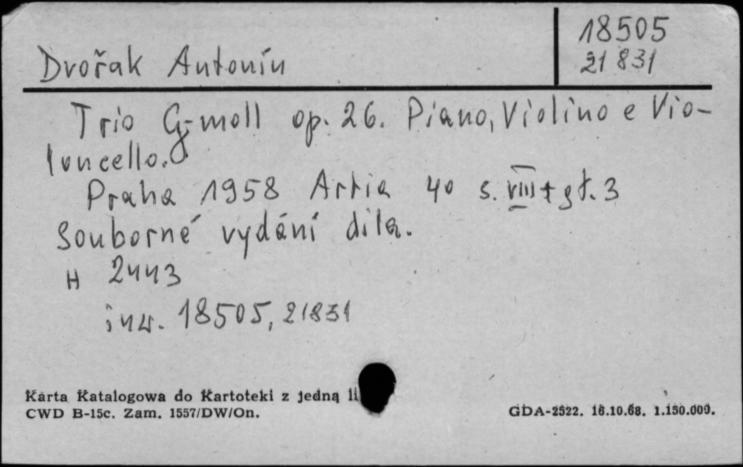 18505
21831
Dvořák Antonín
Trio G-moll op. 26. Piano, Violino e Vio-
loncello.
Praha 1958 Artia 40 s. VIII + gł. 3
Souborné vydání díla.
H 2443
inw. 18505, 21831
Karta Katalogowa do Kartoteki z jedną li
CWD B-15c. Zam. 1557/DW/On.
GDA-2522. 16.10.68. 1.150.000.